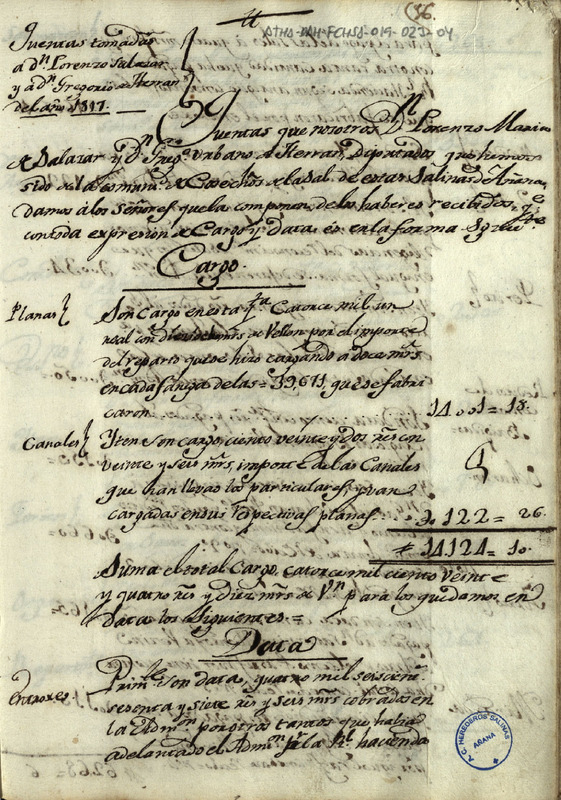 (36.
ATHA-DAH-FCHSA-019-023-04
Quentas tomadas
a dn. Lorenzo Salazar
y a dn. Gregorio de Herran
del año de 1817.
Quentas que nosotros Dn Lorenzo Maria
de Salazar y Dn Gregº. Urbano de Herran, Diputados que hemos
sido de la comunn. de Cosecheros de la Sal de estas Salinas de Añana,
damos a los Señores que la componen, de los haberes recibidos,
con toda expresion de Cargo y data es en la forma Sigte
Cargo.
Planas
Son Cargo en esta qta. Catorce mil un
real con diez y ocho mrs. de Vellon por el importe
del reparto que se hizo cargando a doce mrs.
en cada fanega de las = 39,671, que se fabri
caron 14001 = 18.
Canales
Yten Son cargo, ciento veinte y dos rs. con
veinte y seis mrs. importe de las Canales
que han llevado los particulares, y van
cargadas en sus respectivas planas . . . 122 = 26.
# 14124 = 10.
Suma el total Cargo, catorce mil ciento veinte
y quatro rs. y diez mrs. de Vn. para los que damos en
Data los Siguientes =
Data
Entroxes
Primte. Son data, quatro mil seiscien.
sesenta y siete rs. y seis mrs. cobrados en
la Admon por otros tantos que habia
adelantado el Admor. pr. la Rl. hacienda
A.C. HEREDEROS SALINAS
AÑANA